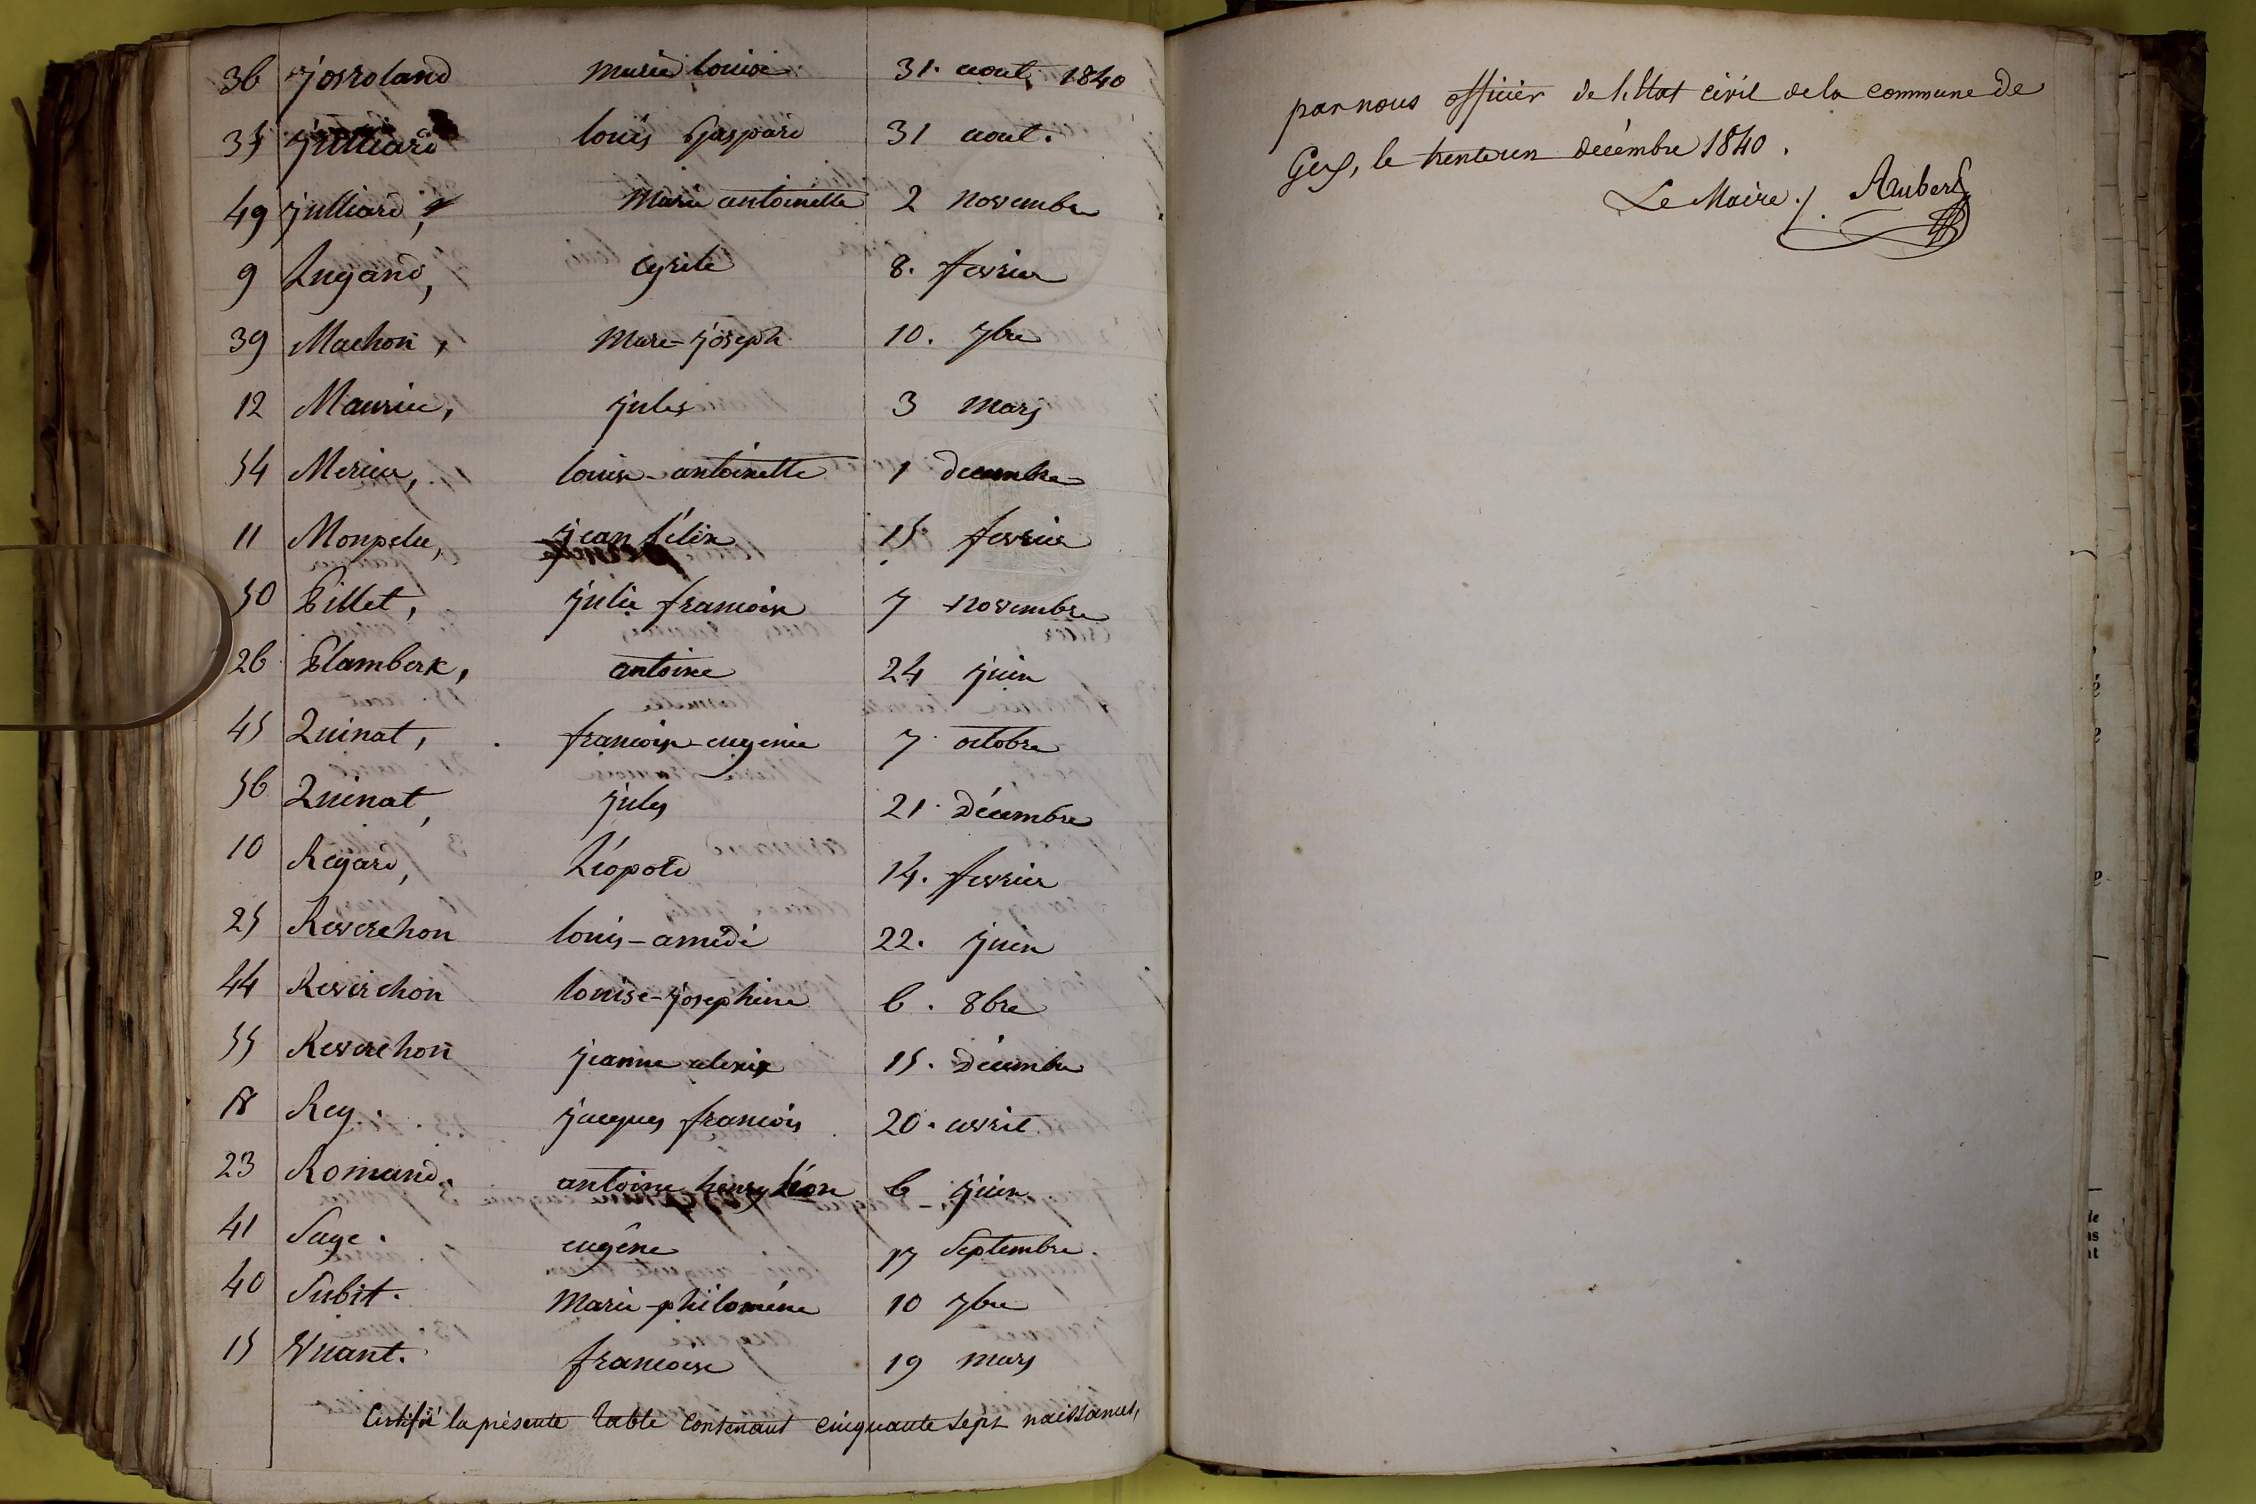 36 josroland marie louise 31. aout 1840
35 julliard louis gaspard 31 aout.
49 julliard, marie antoinette 2 novembre
9 Lugand, cyrile 8. fevrier
39 Machon, Marc-joseph 10. 7bre
12 Maurice, jules 3 mars
54 Mercier, louise-antoinette 1 decembre
11 Monpelu, jean félix 15 fevrier
50 Pillet, julie francoise 7 novembre
26 Plambert, antoine 24 juin
45 Quinat, francoise-eugenie 7 octobre
56 Quinat, jules 21. décembre
10 Regard, Léopold 14. fevrier
25 Reverchon louis-amédé 22. juin
44 Reverchon louise-josephine 6. 8bre
55 Reverchon jeanne alexix 15. décembre
18 Rey. jacques francois 20. avril
23 Romand. antoine henry léon 6 juin
41 Sage. eugêne 17 Septembre.
40 Subit. Marie-philoméne 10 7bre
15 Vuant. francoise 19 mars
Certifié la présente table contenant cinquante sept naissances,
par nous officier de l'état civil de la commune de
Gex, le trente un décembre 1840.
Le Maire. Aubert